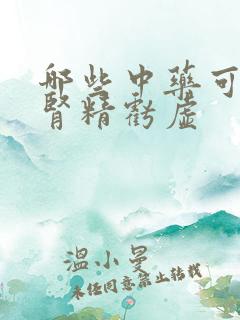 哪些中药可
肾精亏虚
温小曼
未经同意禁止转载